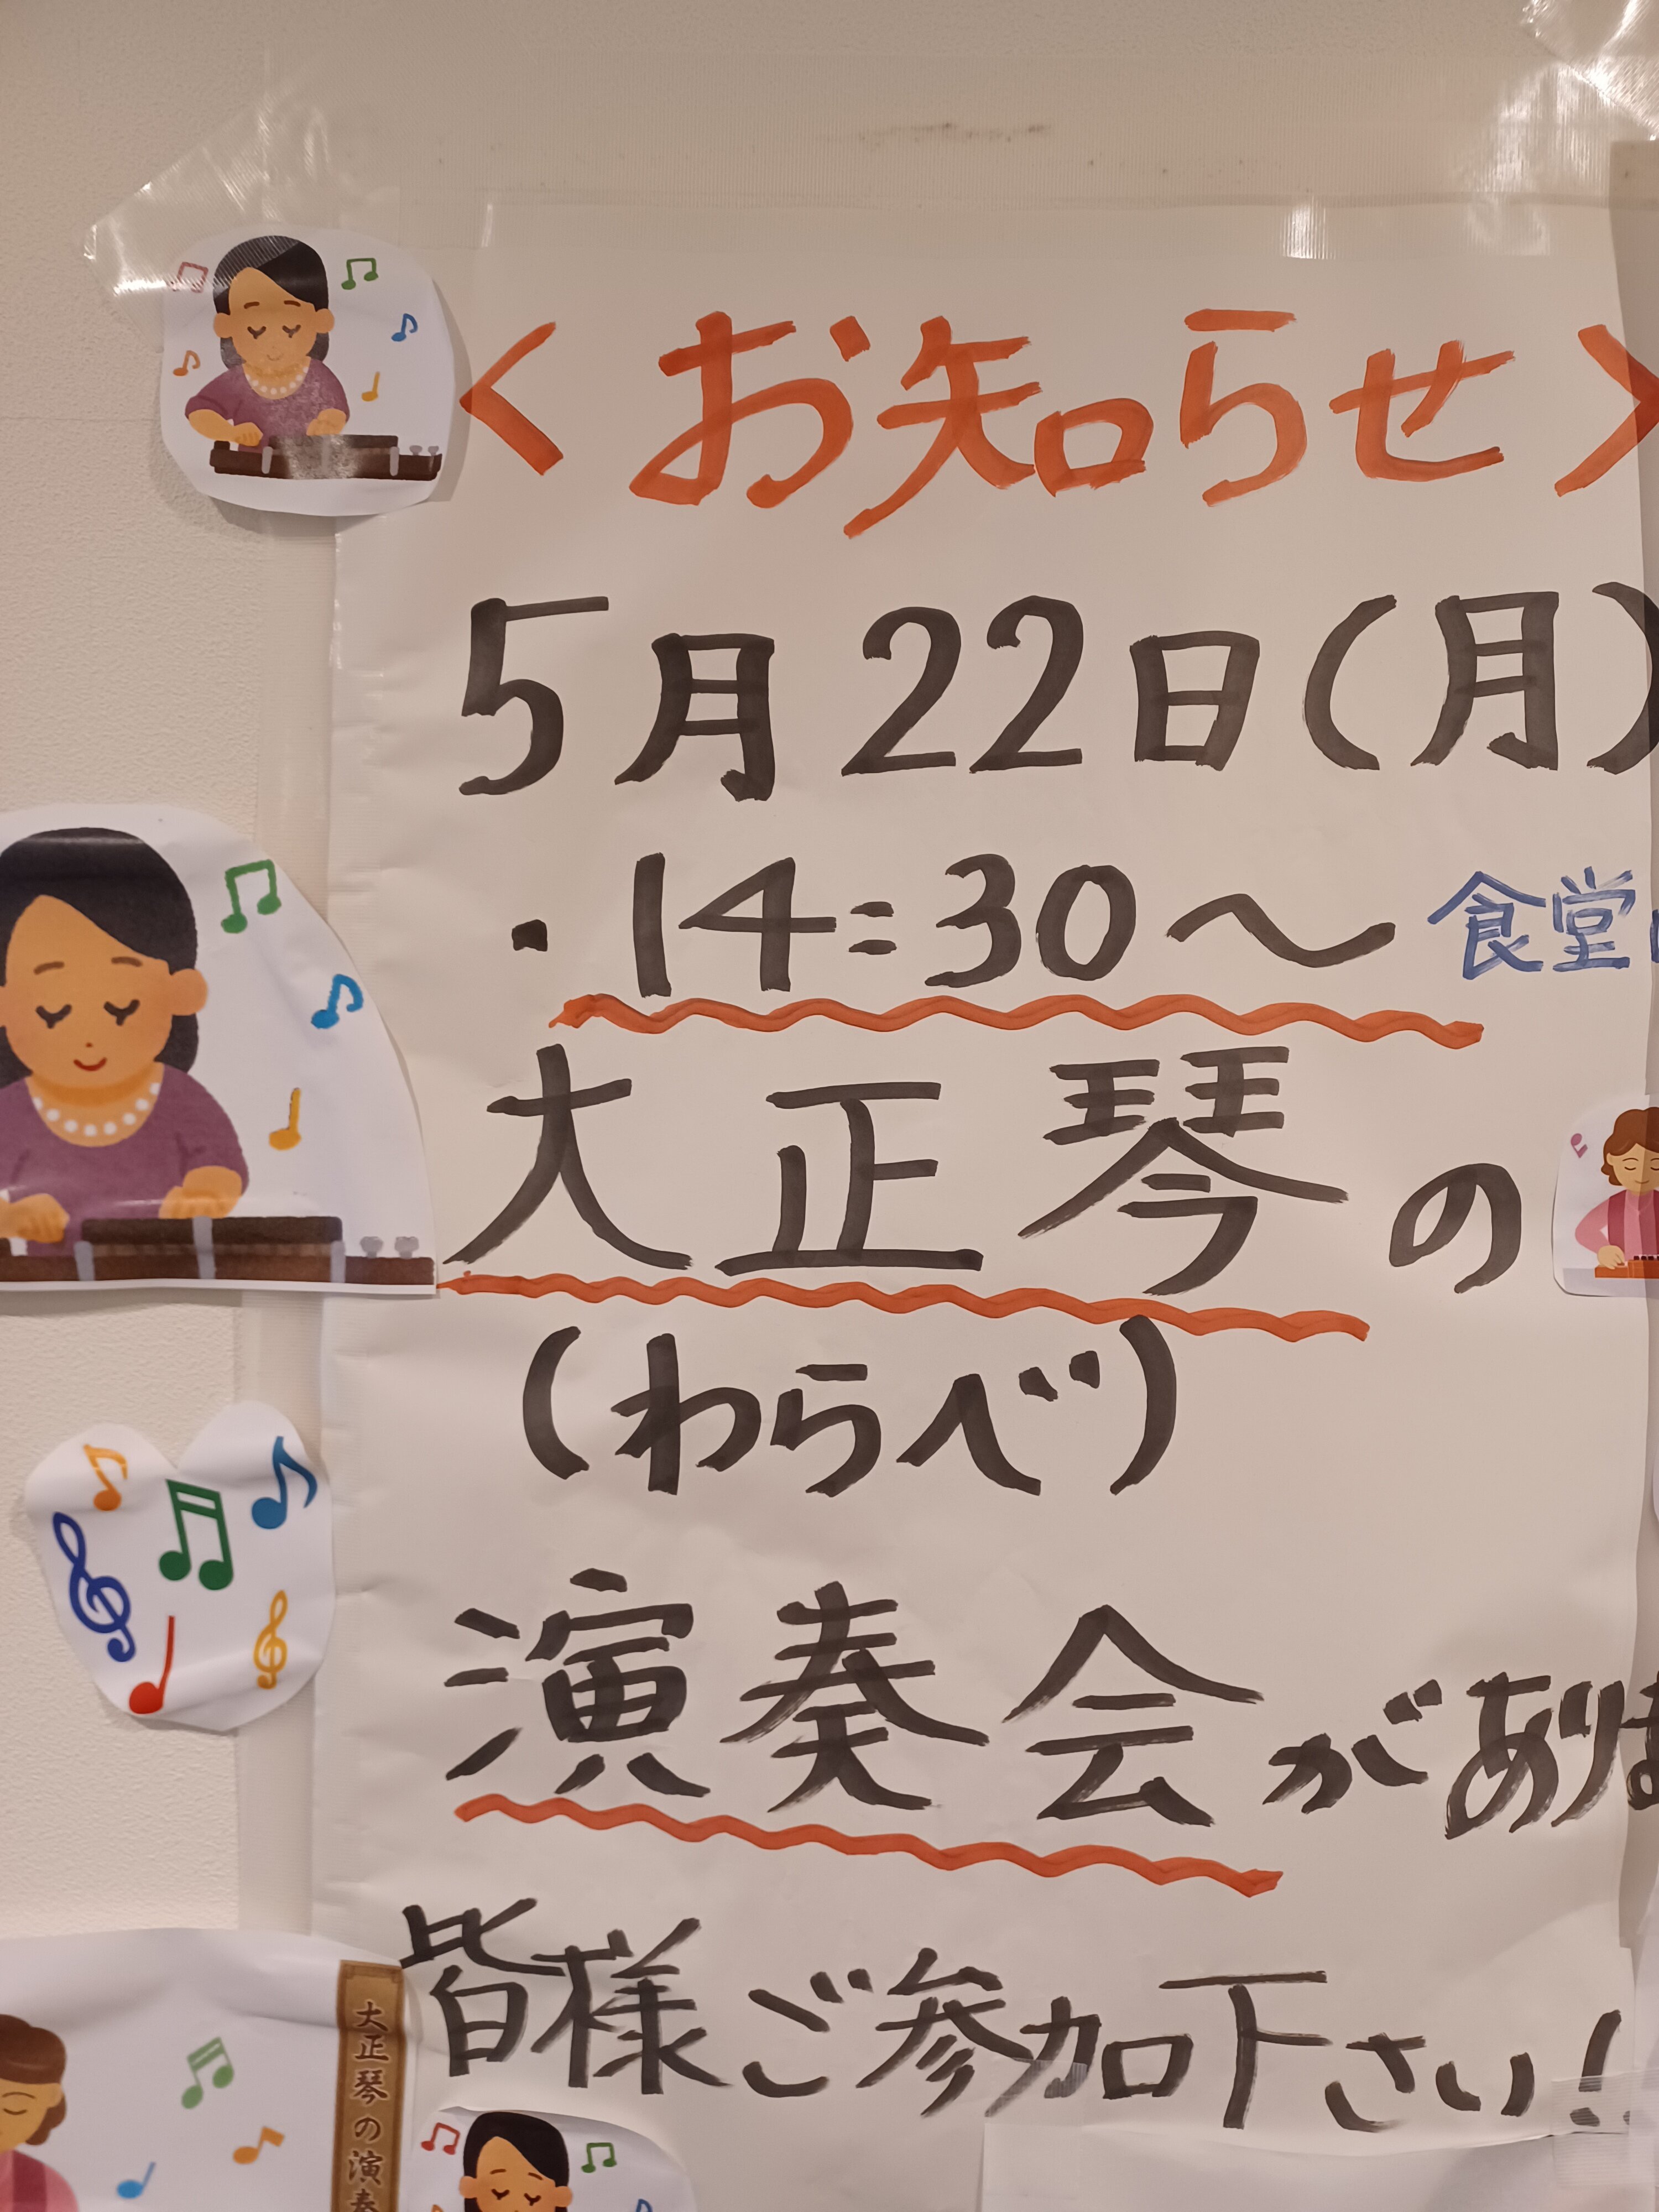 <お知らせ>
5月22日(月)
・14:30～ 食堂
大正琴の
(わらべ)
演奏会があり
皆様ご参加下さい!
大正琴の演奏